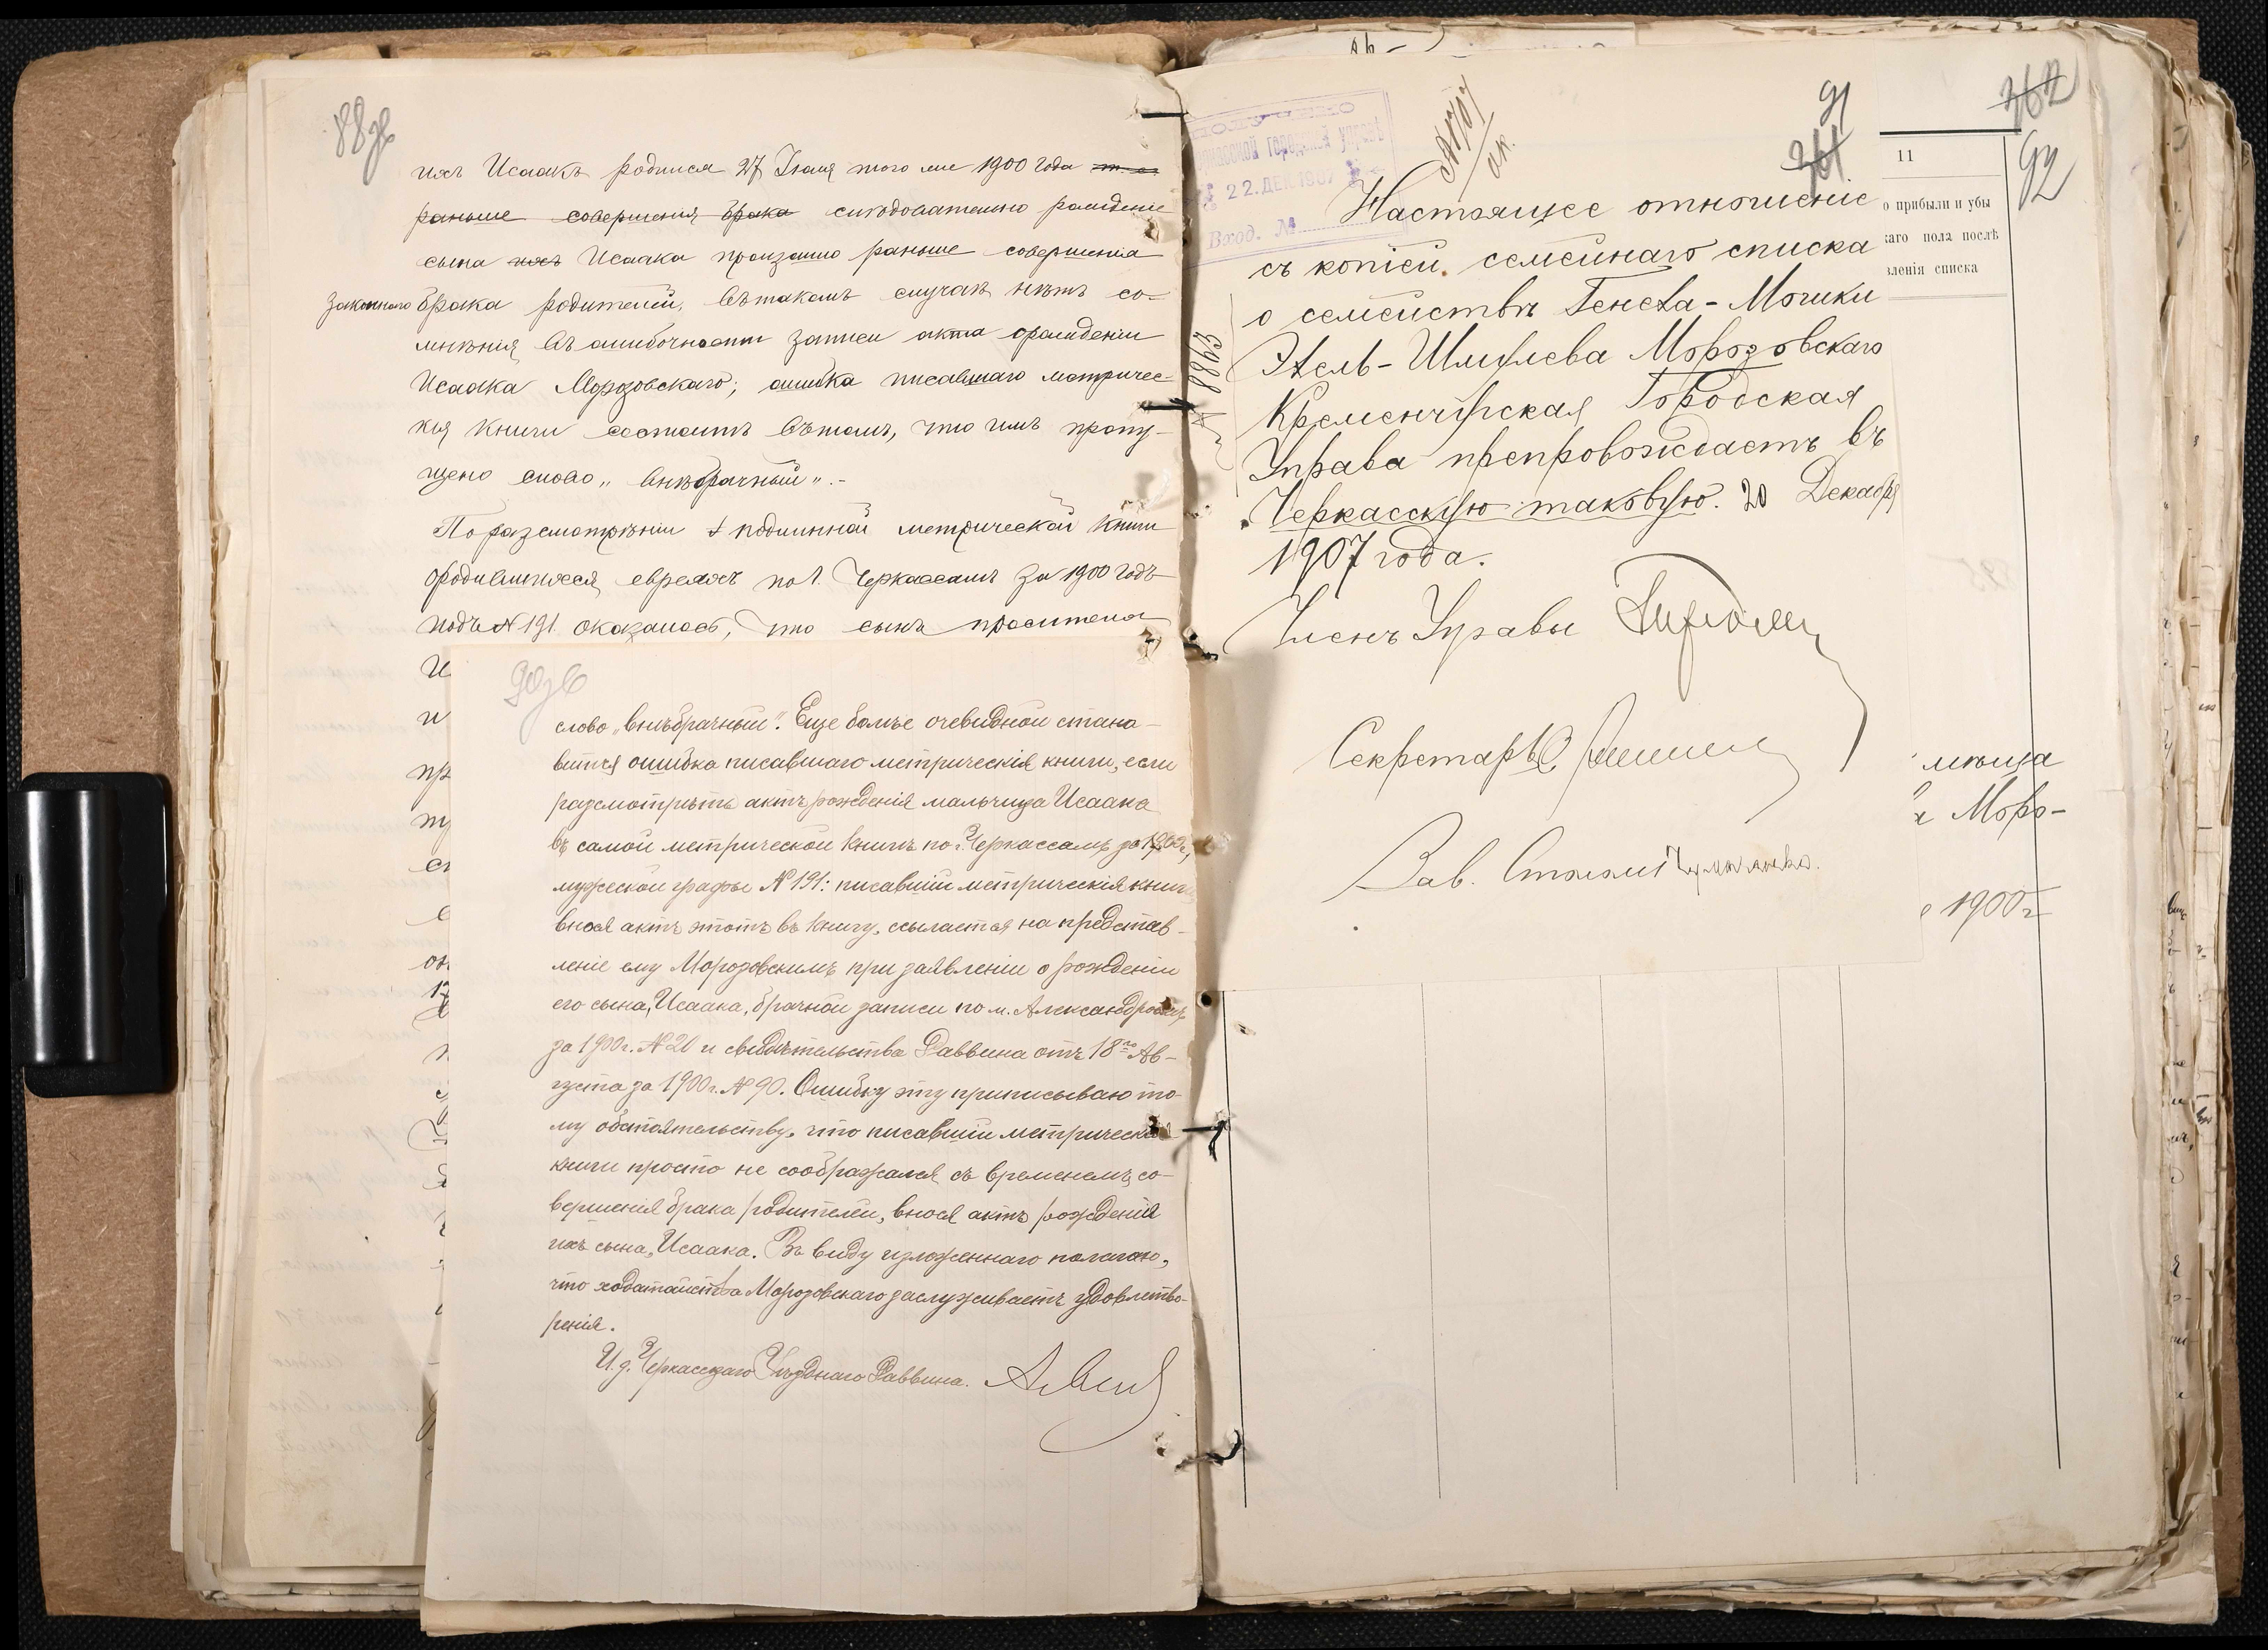 88 зв
ихъ Исаакъ родился 27 Іюля того же 1900 года т. е.
раньше совершенія брака слѣдовательно рожденіе
сына ихъ Исаака произошло раньше совершенія
законнаго брака родителей, въ такомъ случаѣ нѣтъ со-
мнѣнія въ ошибочности записи акта о рожденіи
Исаака Морозовскаго; ошибка писавшаго метричес-
кія книги состоитъ въ томъ, что имъ пропу-
щено слово „внѣбрачный".-
По разсмотрѣніи подлинной метрической книги
о родившихся евреяхъ по г. Черкассамъ за 1900 годъ
подъ № 191 оказалось, что сынъ просителя
90 зв
слово „внѣбрачный". Еще болѣе очевидной стано-
вится ошибка писавшаго метрическія книги, если
разсмотрѣть актъ рожденія мальчика Исаака
въ самой метрической книгѣ по г. Черкассамъ за 1900 г.,
мужской графы № 191: писавшій метрическія книги
внося актъ этотъ въ книгу, ссылается на представ-
леніе ему Морозовскимъ при заявленіи о рожденіи
его сына, Исаака, брачной записи по м. Александровкѣ
за 1900 г. № 20 и свидѣтельства Раввина отъ 18го Ав-
густа за 1900 г. № 90. Ошибку эту приписываю то-
му обстоятельству, что писавшій метрическія
книги просто не сообразжался съ временемъ со-
вершенія брака родителей, внося актъ рожденія
ихъ сына, Исаака. Въ виду изложеннаго полагаю,
что ходатайство Морозовскаго заслуживаетъ удовлетво-
ренія.
И. д. Черкасскаго Уѣзднаго Раввина.
ПОЛУЧЕНО
городской управѣ
22. ДЕК 1907
Вход. №
91
361
362
92
№ 8865
Настоящее отношеніе
съ копіей семейнаго списка
о семействѣ Генеха-Мошки
Эхель-Шмулева Морозовскаго
Кременчугская Городская
Управа препровождаетъ въ
Черкасскую таковую. 20 Декабря
1907 года.
Членъ Управы
Секретарь
Зав. Столомъ
11
о прибыли и убы
каго пола послѣ
вленія списка
Моро-
1900 г